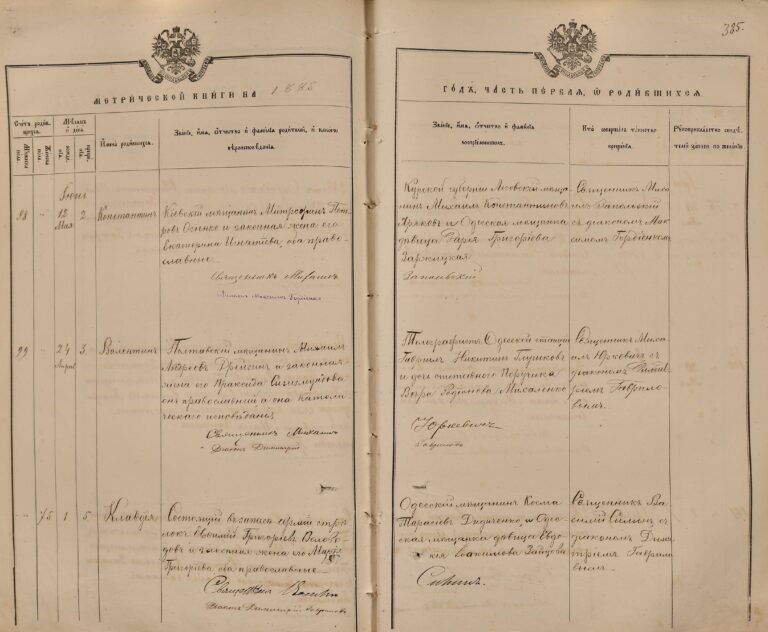 335.
МЕТРИЧЕСКОЙ КНИГИ НА 1885
ГОДЪ, ЧАСТЬ ПЕРВАЯ, Ѡ РОДИВШИХСЯ
Счетъ родив-
шихся.
Мѣсяцъ
и день
Имена родившихся.
Званіе, имя, отчество и фамилія родителей, и какого
вѣроисповѣданія.
Званіе, имя, отчество и фамилія
воспріемниковъ.
Кто совершалъ таинство
крещенія.
Рукоприкладство свидѣ-
телей записи по желанію.
Іюнь
98 " 12 2 Константинъ
Мая
Кіевскій мѣщанинъ Митрофанъ Пет-
ровъ Осенко и законная жена его
Екатерина Игнатіева, оба право-
славные.
Священникъ Михаилъ
Діаконъ Максимъ Гордіенко
Курской губерніи мѣща-
нинъ Михаилъ Константиновъ
и Одесская мѣщанка
дѣвица Дарія Григоріева
Заржицкая
Запольскій
Священникъ Миха-
илъ Запольскій
съ діакономъ Мак-
симомъ Гордіенкомъ
99 " 24 3. Валентинъ
Апрѣл
Полтавскій мѣщанинъ Михаилъ
Андреевъ и законная
жена его Праксида Сигизмундова
онъ православный а она Католи-
ческаго исповѣданія,
Священникъ Михаилъ
Діаконъ Димитрій
Телеграфистъ Одесской станціи
Гавріилъ Никитинъ Глушковъ
и дочь отставного Поручика
Вѣра Родіонова Михаленко
Юркевичъ
Гавриловъ
Священникъ Миха-
илъ Юркевичъ съ
діакономъ Димит-
ріемъ Гаврило-
вымъ.
" 75 1 5 Клавдія
Состоящій въ запасѣ арміи стрѣ-
локъ Евсевій Григоріевъ
и законная жена его Марія
Григоріева, оба православные
Священникъ Василій
Діаконъ Димитрій Гавриловъ
Одесскій мѣщанинъ Косма
Тарасіевъ Дидиченко, и Одес-
ская мѣщанка дѣвица Евдо-
кія Іоакимова Зайцева
Священникъ Ва-
силій съ
діакономъ Дими-
тріемъ Гаврило-
вымъ.